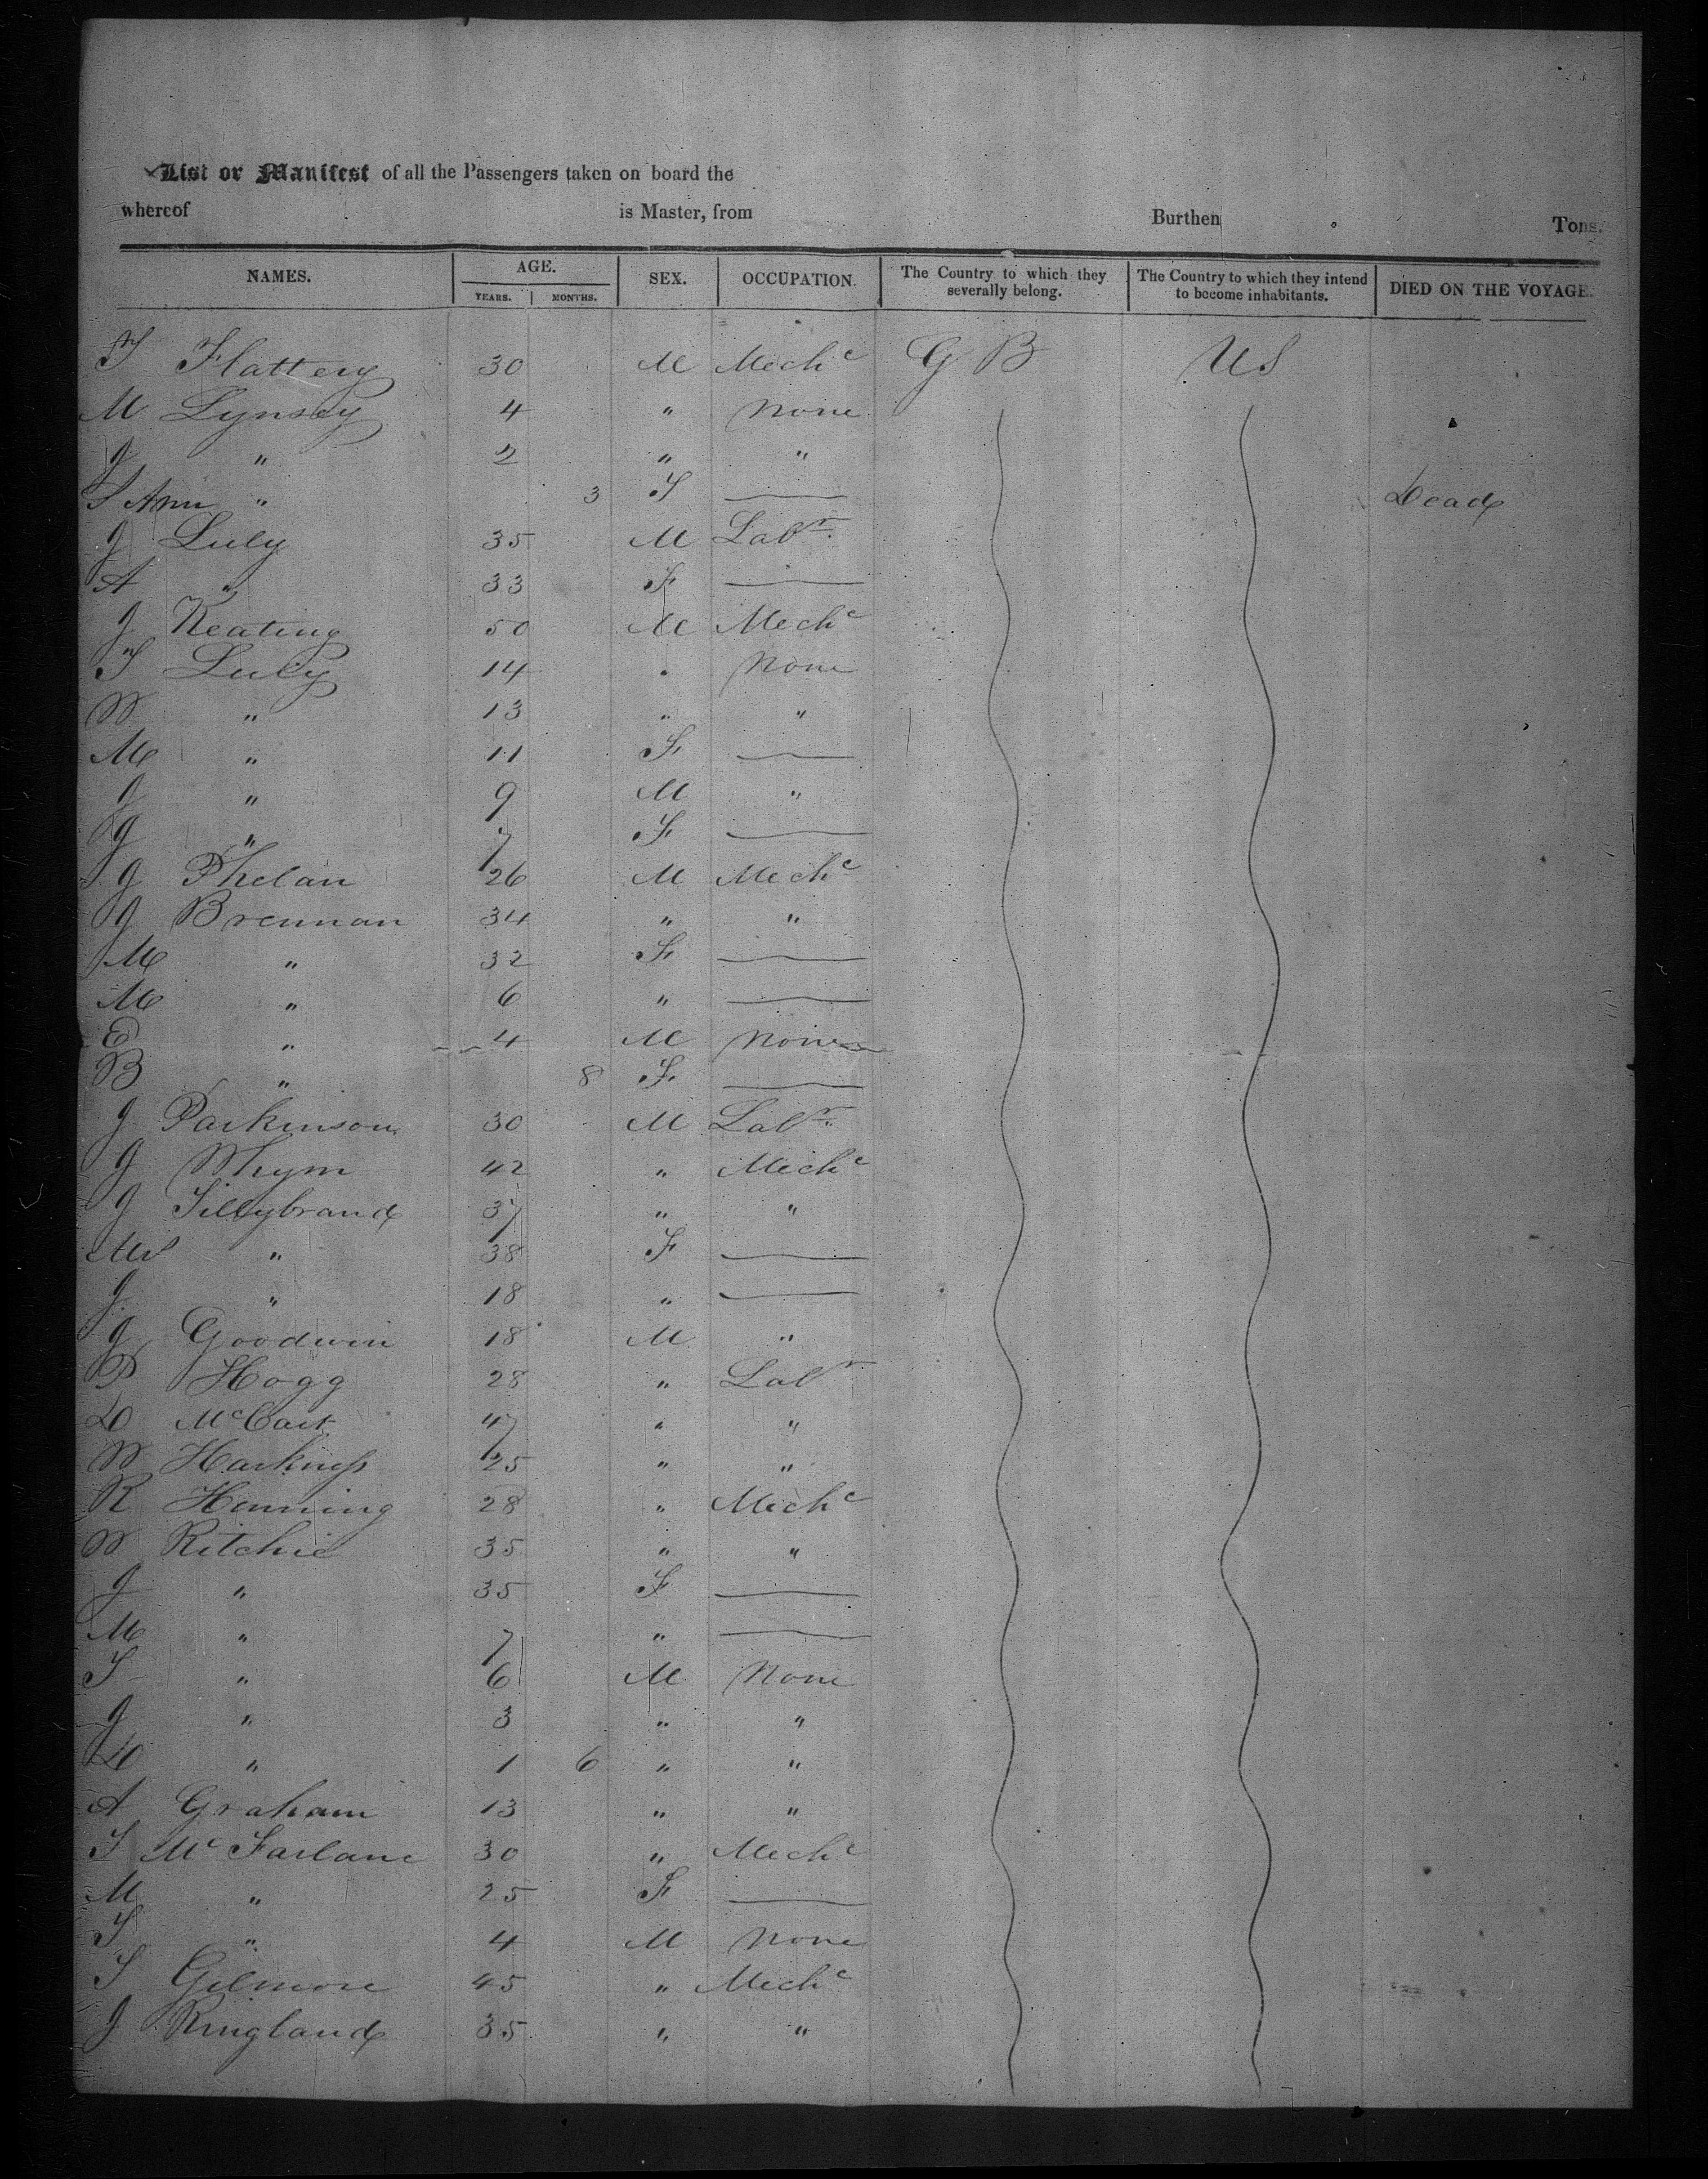 List or Manifest of all the Passengers taken on board the
whereof is Master, from Burthen Tons.
NAMES. AGE. YEARS. MONTHS. SEX. OCCUPATION. The Country to which they severally belong. The Country to which they intend to become inhabitants. DIED ON THE VOYAGE.
T Flattery 30 M Mechc G B U S
M Lynsey 4 " None
J " 2 " "
S Ann " 3 F Dead
J Luly 35 M Labr
A " 33 F
J Keating 50 M Mechc
T Luly 14 " None
W " 13 " "
M " 11 F
J " 9 M "
J " 7 F
J Phelan 26 M Mechc
J Brennan 34 " "
M " 32 F
M " 6 "
E " 4 M None
B " 8 F
J Parkinson 30 M Labr
J Whym 42 " Mechc
J Tillybrand 37 " "
Mrs " 38 F
J " 18 "
J Goodwin 18 M "
P Hogg 28 " Labr
D McCart 47 " "
W Harkness 25 " "
R Henning 28 " Mechc
W Ritchie 35 " "
J " 35 F
M " 7 "
T " 6 M None
J " 3 " "
D " 1 6 " "
A Graham 13 " "
T Mc Farlane 30 " Mechc
M " 25 F
T " 4 M None
S Gilmore 45 " Mechc
J Ringland 35 " "